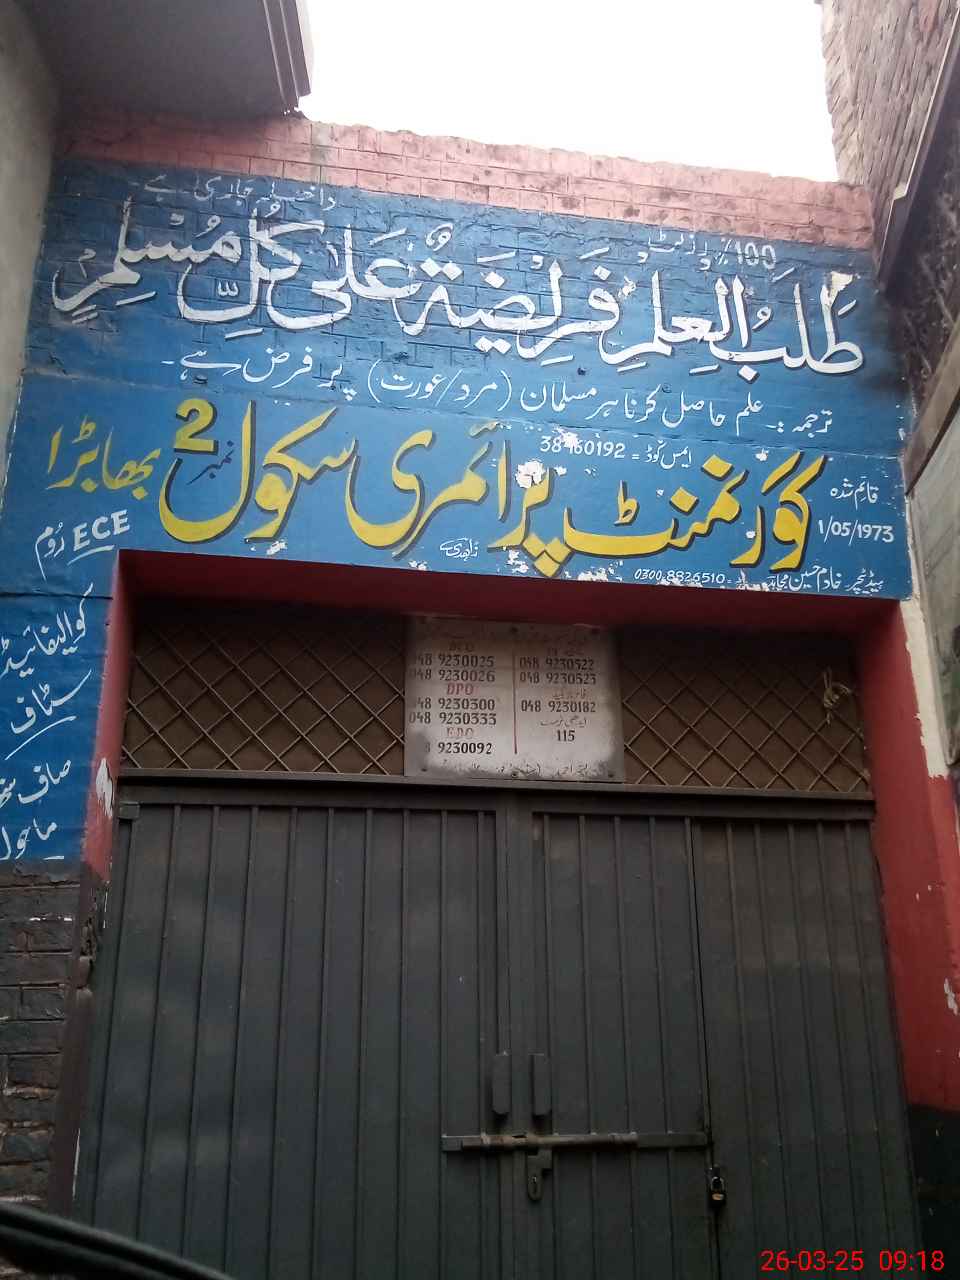 داخلہ جاری ہے
100٪ رزلٹ
طَلَبُ الْعِلْمِ فَرِيْضَةٌ عَلٰى كُلِّ مُسْلِمٍ
ترجمہ:۔ علم حاصل کرنا ہر مسلمان (مرد/عورت) پر فرض ہے۔
ایمس کوڈ = 38460192
قائم شدہ
1/05/1973
گورنمنٹ پرائمری سکول نمبر 2 بھابڑا
ہیڈ ٹیچر خادم حسین مجاہد = 0300.8826510
زاہدی
ECE رُوم
کوالیفائیڈ
سٹاف
صاف
ماحول
048 9230025 048 9230522
048 9230026 048 9230523
DPO
048 9230300 048 9230182
048 9230333
EDO 115
9230092
26-03-25 09:18